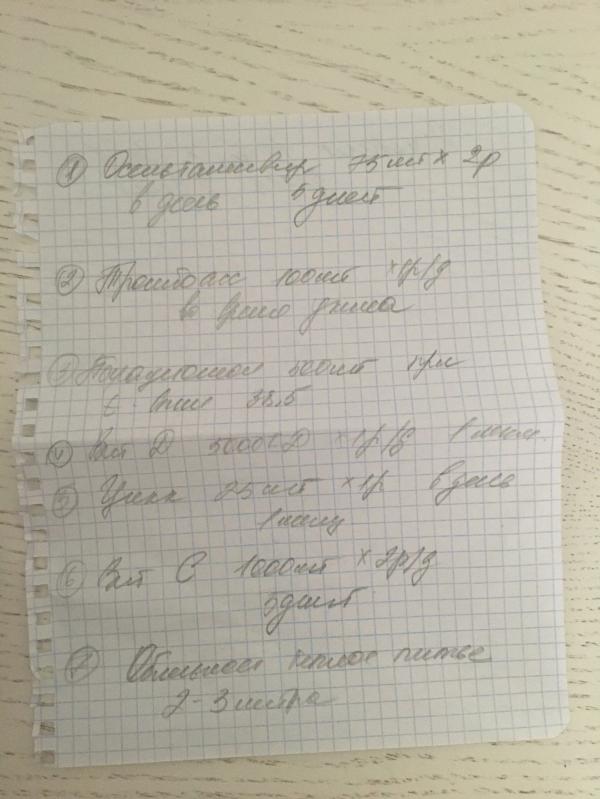 ① Осельтамивир 75 мг × 2р
в день 5 дней
② Тромбоасс 100мг ×1р/д
во время ужина
③ Парацетамол 500мг при
t выше 38,5
④ Вит D 5000ЕД ×1р/д 1 месяц
⑤ Цинк 25 мг ×1р в день
1 месяц
⑥ Вит С 1000мг ×2р/д
5дней
⑦ Обильное теплое питье
2-3 литра